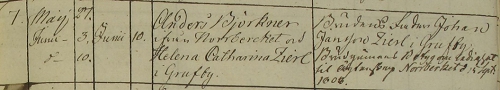 7. Maij 27. Anders Björkner Brudens Fader Johan
Junii 3. Junii 10. ifrån Norrbercket och Jansson Zierl i Grufby.
d° 10. Helena Catharina Zierl Brudgumens Betyg om ledighet
i Grufby. til Ägtenskap Norrberket d.
1808.